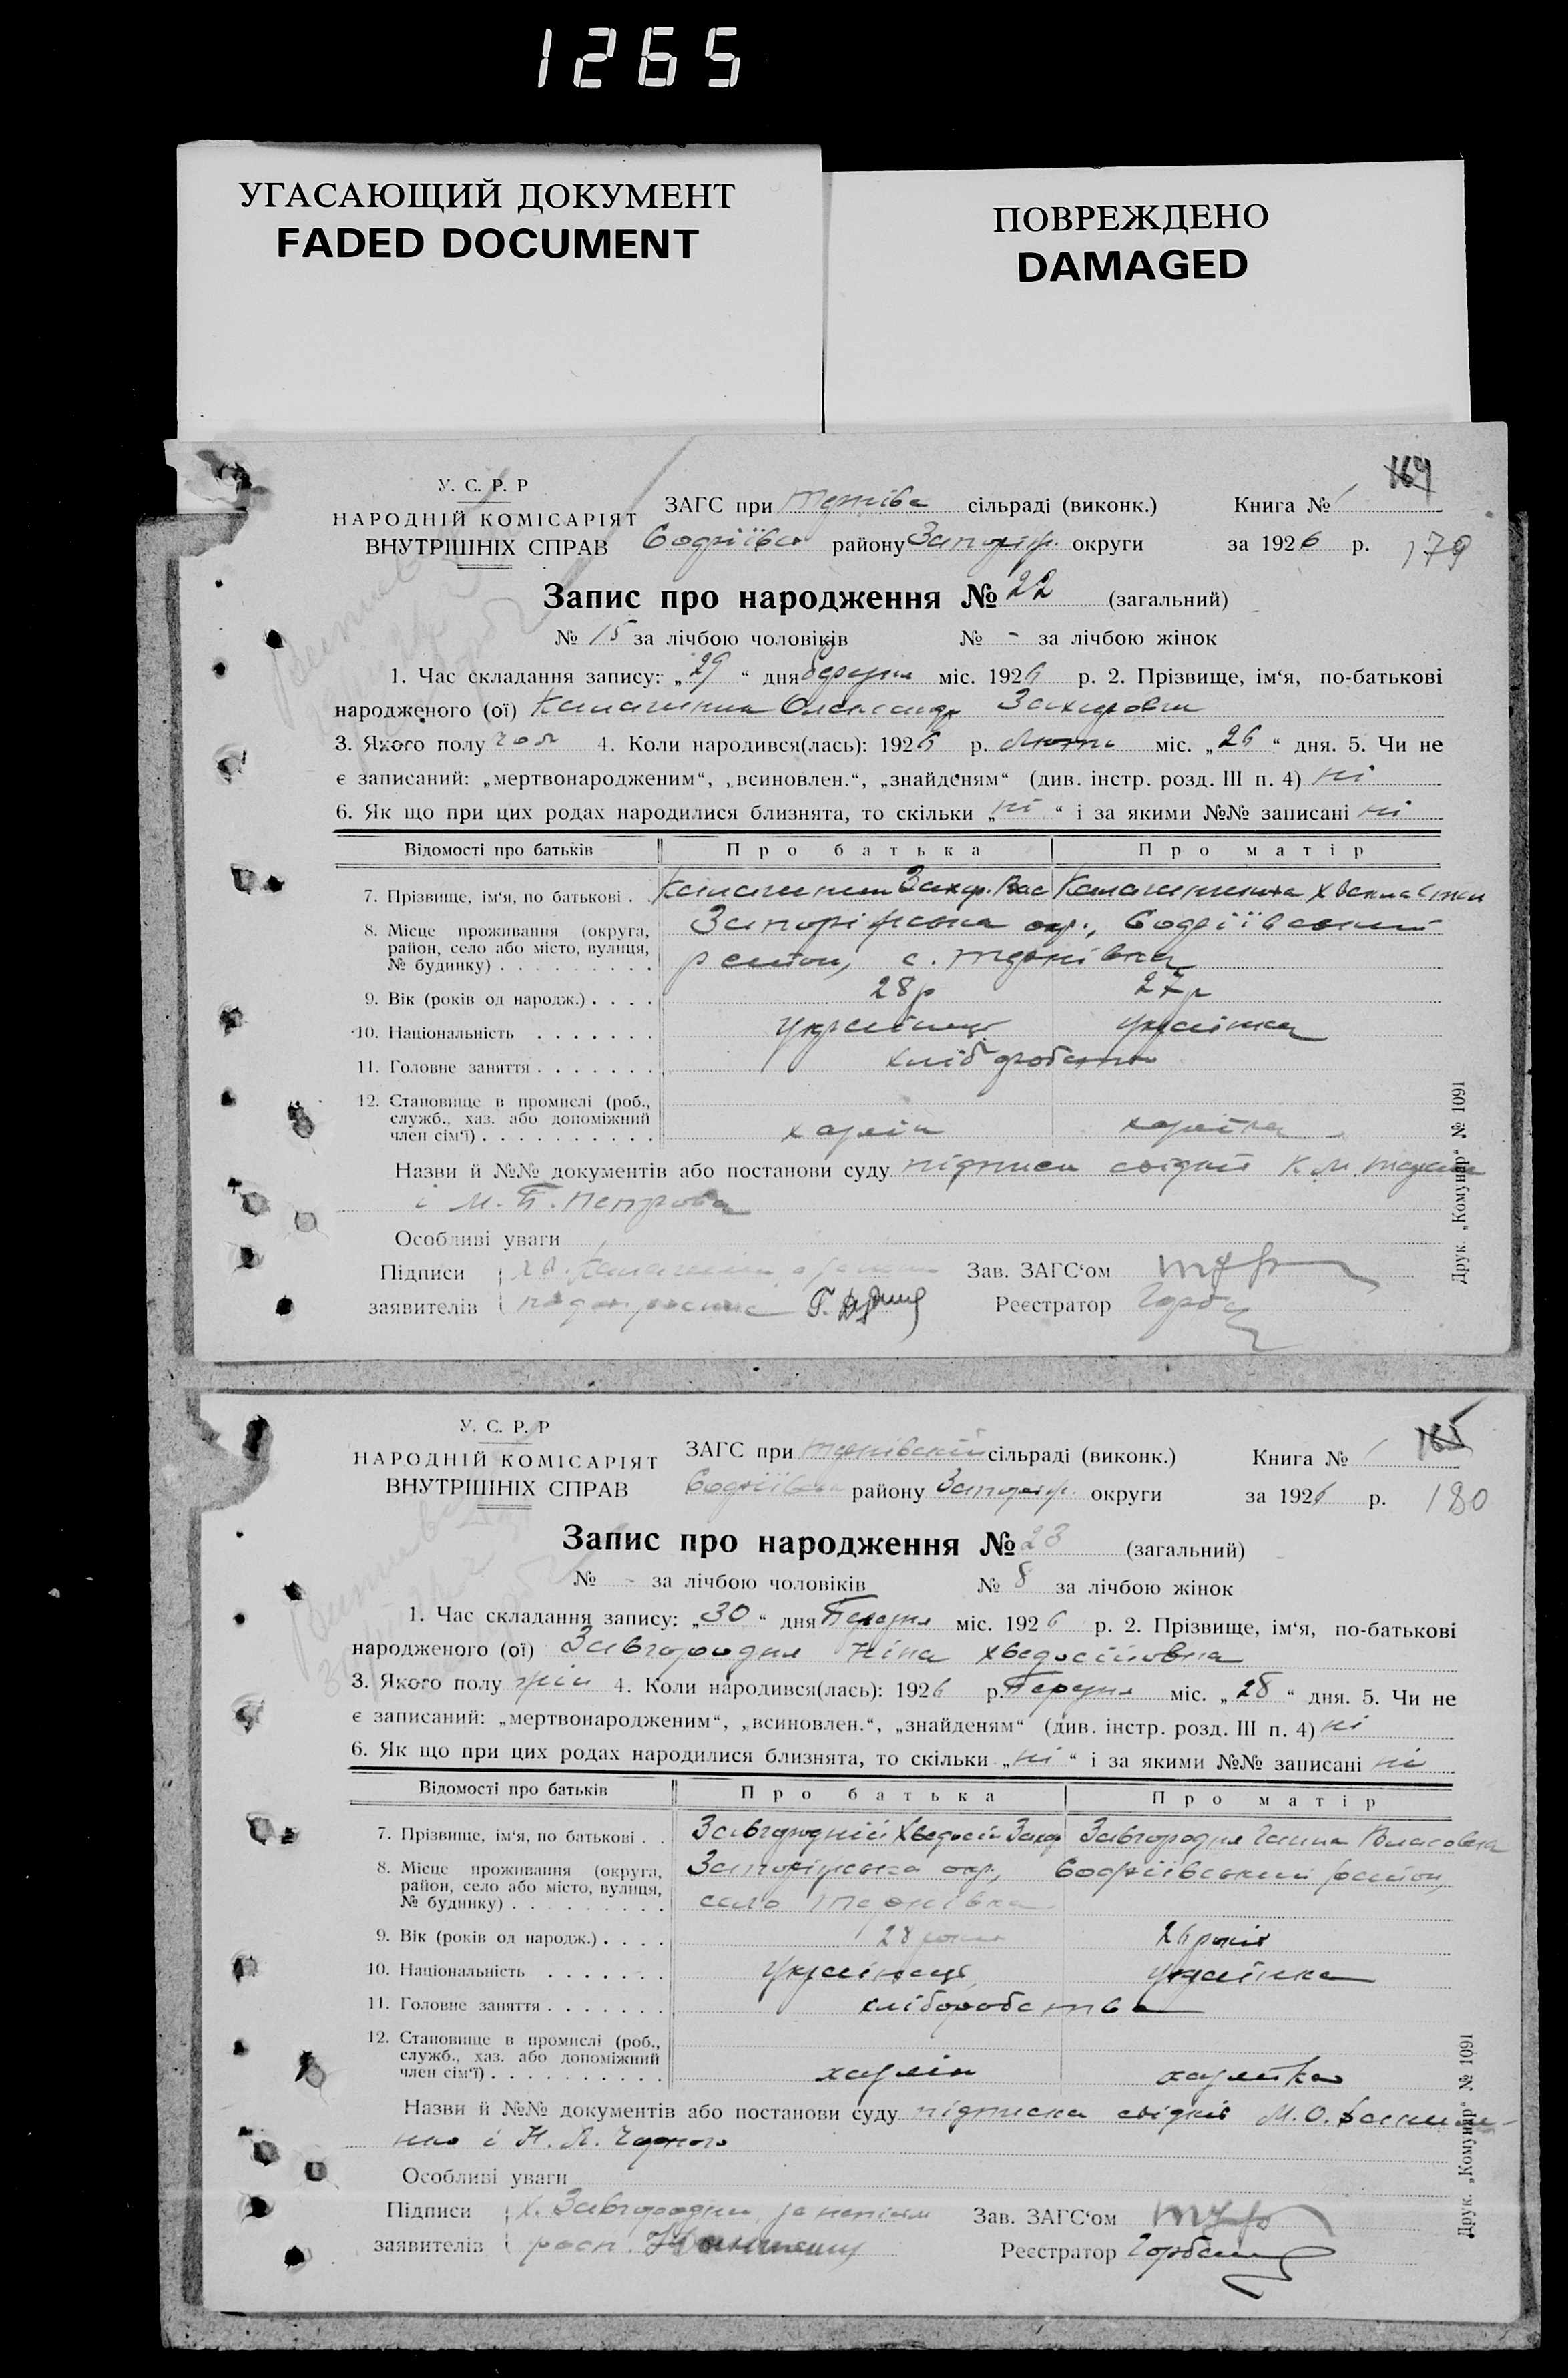 1265
УГАСАЮЩИЙ ДОКУМЕНТ
FADED DOCUMENT
ПОВРЕЖДЕНО
DAMAGED
У. С. Р. Р
НАРОДНІЙ КОМІСАРІЯТ
ВНУТРІШНІХ СПРАВ
ЗАГС при сільраді (виконк.)
району Запоріж. округи
Книга № 1
169
за 1926 р.
179
Запис про народження № 22 (загальний)
№ 15 за лічбою чоловіків № - за лічбою жінок
1. Час складання запису: „29“ дня березня міс. 1926 р. 2. Прізвище, ім‘я, по-батькові
народженого (ої) Олександр Захарович
3. Якого полу чол 4. Коли народився(лась): 1926 р. міс. „26“ дня. 5. Чи не
є записаний: „мертвонародженим“, „всиновлен.“, „знайденям“ (див. інстр. розд. III п. 4) ні
6. Як що при цих родах народилися близнята, то скільки „ні“ і за якими №№ записані ні
Відомості про батьків Про батька Про матір
7. Прізвище, ім‘я, по батькові . . Захар. Вас
8. Місце проживання (округа, Запоріжська окр.,
район, село або місто, вулиця, район, с. Тернівка
№ будинку) . . . . . . . . .
9. Вік (років од народж.) . . . . 28р 27р
10. Національність . . . . . . . українець українка
11. Головне заняття . . . . . . . хлібороб
12. Становище в промислі (роб.,
служб., хаз. або допоміжний
член сім‘ї) . . . . . . . . . . хазяїн хазяйка
Назви й №№ документів або постанови суду підписка свідків К. М.
і М. П. Петрова
Особливі уваги
Підписи Зав. ЗАГС‘ом
заявителів Реєстратор Горбач
Друк. „Комунар“ № 1091
У. С. Р. Р
НАРОДНІЙ КОМІСАРІЯТ
ВНУТРІШНІХ СПРАВ
ЗАГС при Тернівській сільраді (виконк.)
району Запоріж. округи
Книга № 1
165
за 1926 р.
180
Запис про народження № 23 (загальний)
№ - за лічбою чоловіків № 8 за лічбою жінок
1. Час складання запису: „30“ дня Березня міс. 1926 р. 2. Прізвище, ім‘я, по-батькові
народженого (ої) Завгородня Ніна Хведосіїовна
3. Якого полу жін 4. Коли народився(лась): 1926 р. Березня міс. „28“ дня. 5. Чи не
є записаний: „мертвонародженим“, „всиновлен.“, „знайденям“ (див. інстр. розд. III п. 4) ні
6. Як що при цих родах народилися близнята, то скільки „ні“ і за якими №№ записані ні
Відомості про батьків Про батька Про матір
7. Прізвище, ім‘я, по батькові . . Завгородній Хведосій Захар Завгородня Ганна Власовна
8. Місце проживання (округа, Запоріжська окр., район,
район, село або місто, вулиця, село Тернівка
№ будинку) . . . . . . . . .
9. Вік (років од народж.) . . . . 28 років 26 років
10. Національність . . . . . . . українець українка
11. Головне заняття . . . . . . . хліборобство
12. Становище в промислі (роб.,
служб., хаз. або допоміжний
член сім‘ї) . . . . . . . . . . хазяїн хазяйка
Назви й №№ документів або постанови суду підписка свідків М. О.
і Н. Л. Чорного
Особливі уваги
Підписи Х. Завгородній Зав. ЗАГС‘ом
заявителів Реєстратор Горбач
Друк. „Комунар“ № 1091